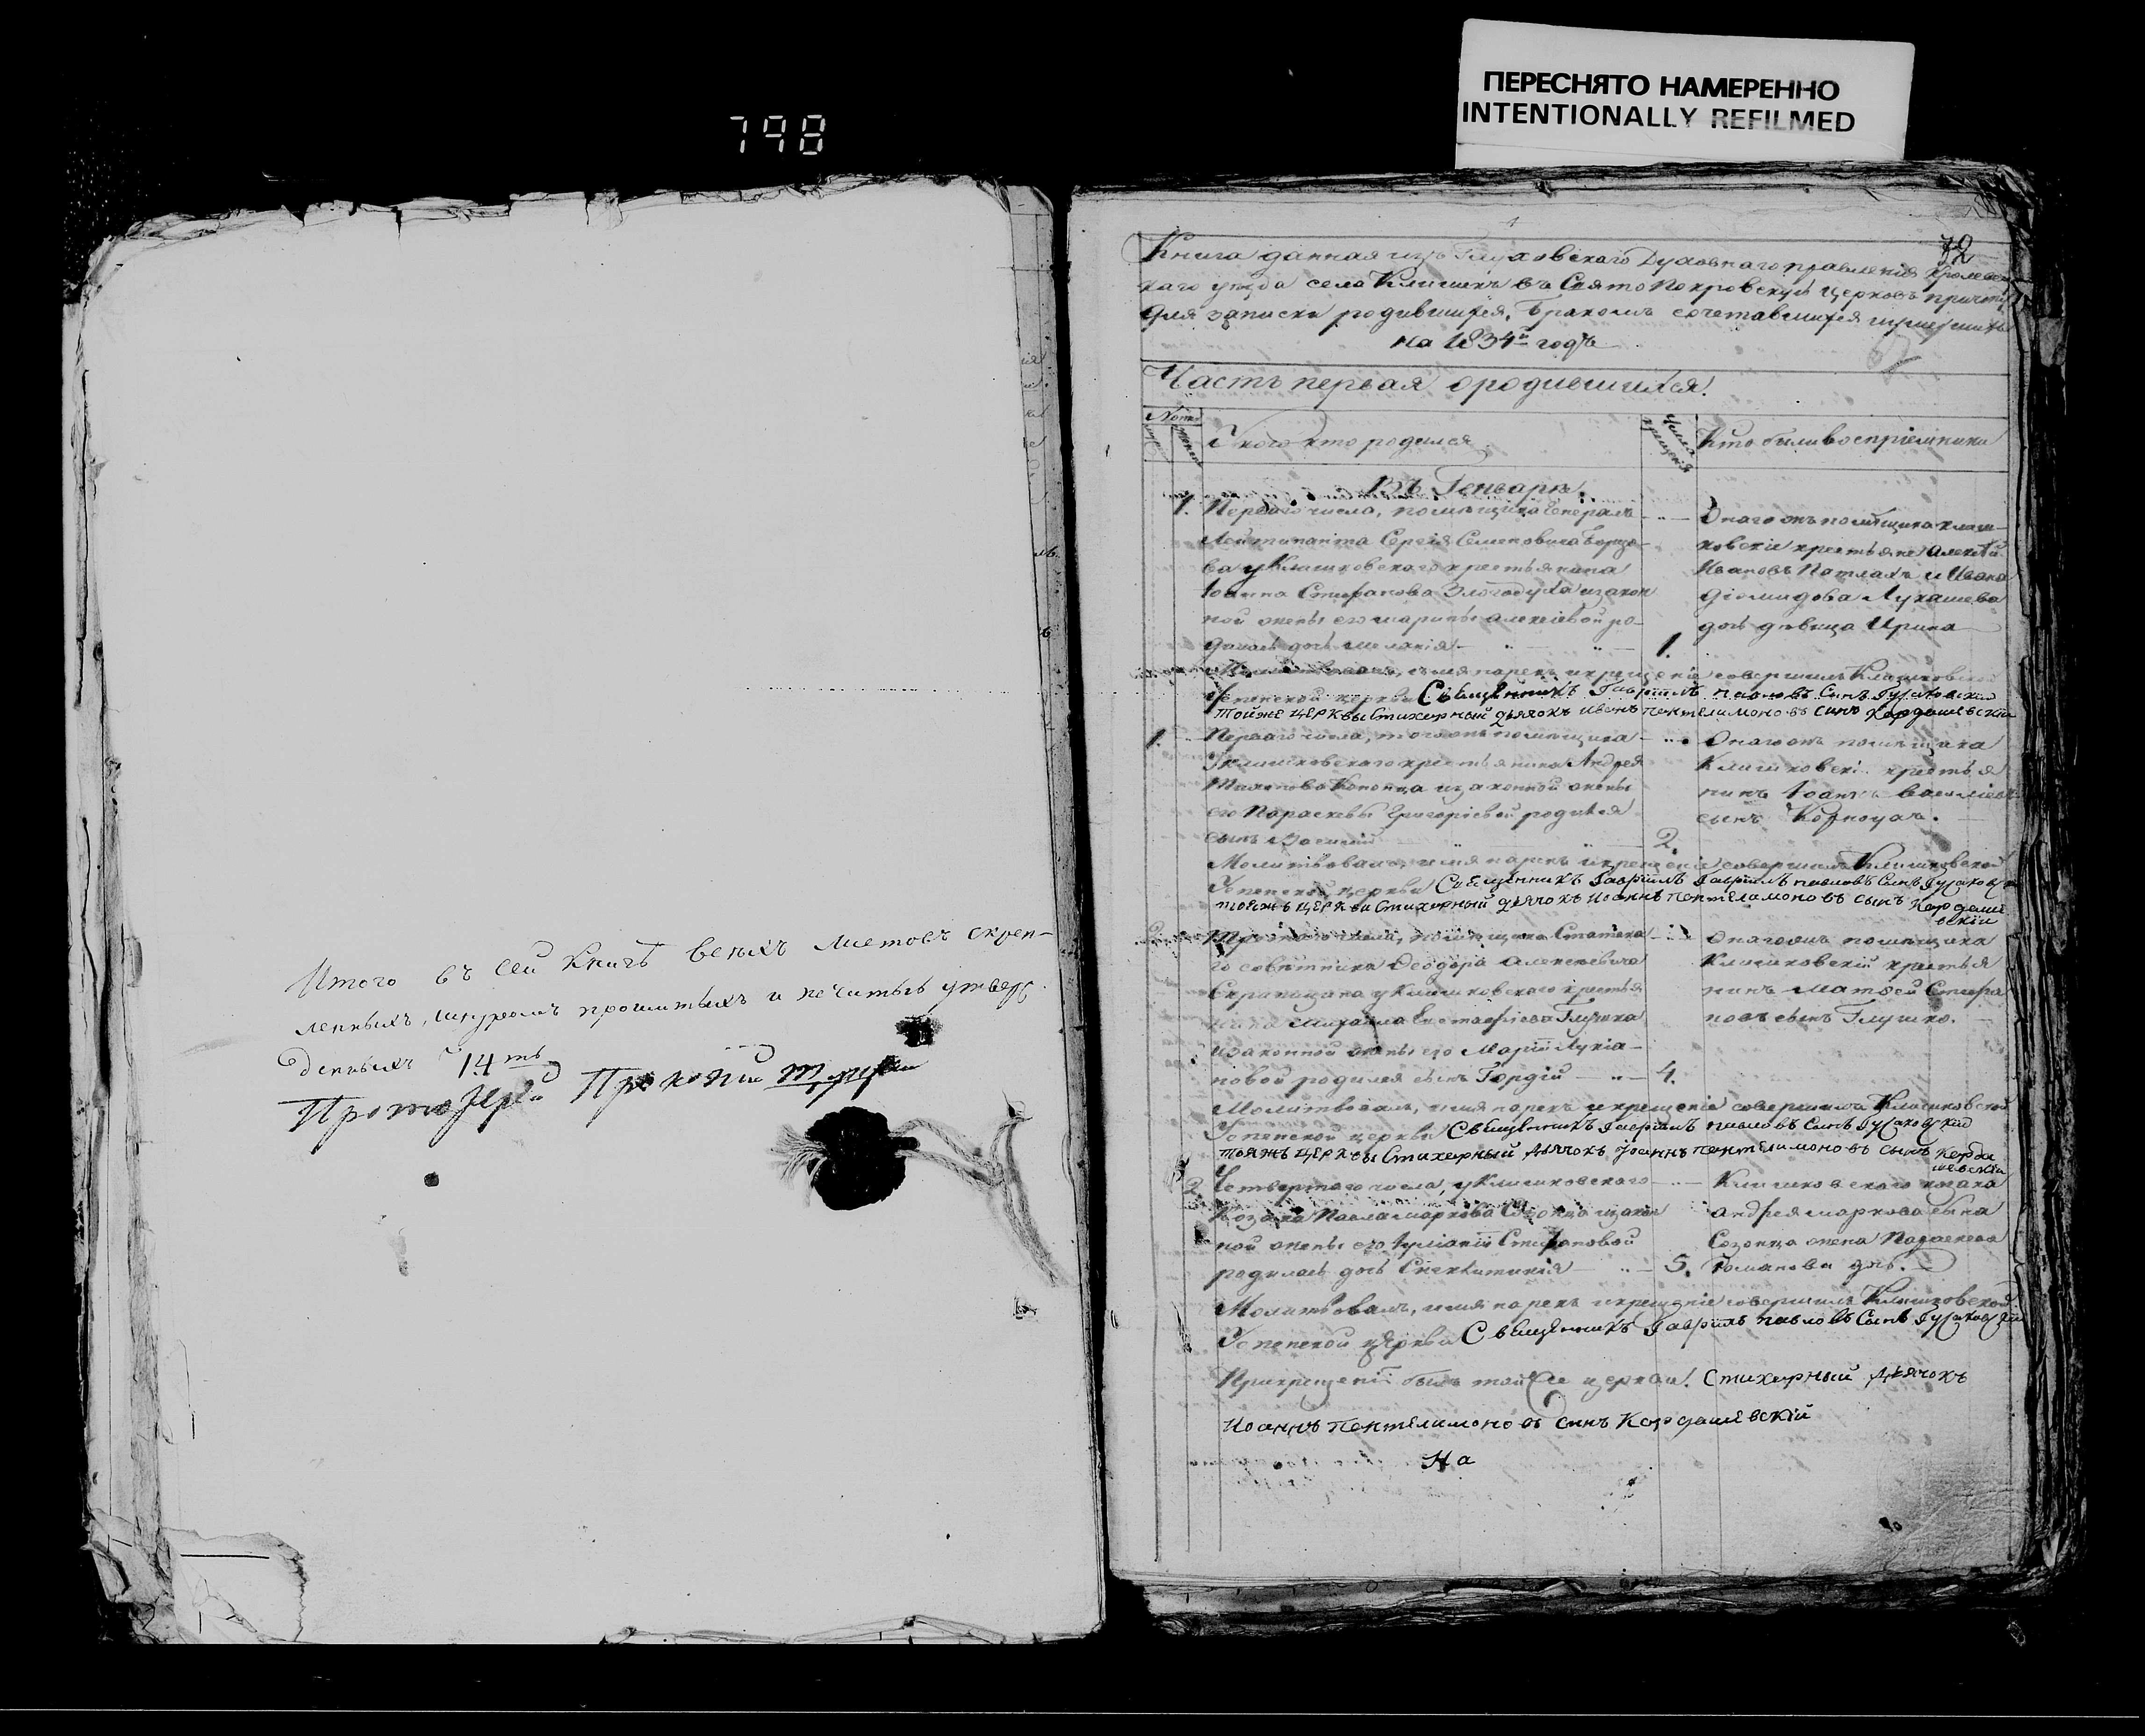 ПЕРЕСНЯТО НАМЕРЕННО
INTENTIONALLY REFILMED
798
Итого въ сей Книгѣ всѣхъ листовъ скреп-
ленныхъ, шнуромъ прошитыхъ и печатью утверж
денныхъ 14ть
Протоіерей Прокопій
72
Книга данная изъ Глуховскаго Духовнаго правленія Кролевец
каго уѣзда села Клишекъ въ Свято Покровскую церковь
Для записки родившихся, Бракомъ сочетавшихся и умершихъ
на 1834й годъ
Часть первая о родившихся.
У кого кто родился
Число крещенія
Кто были воспріемники
Въ Генварѣ.
1. Перваго числа, помѣщика Генералъ
Лейтинанта Сергія Семеновича
ва у Клишковскаго крестьянина
Іоанна Стефанова Злотодуха изакон
ной жены его Марины Алексіевой ро-
дилась дочь Меланія 1.
Онаго жъ помѣщика Клиш-
ковскіе крестьяне Алексѣй
Ивановъ Потлахъ и Ивана
Діомидова Лукашева
дочь дѣвица Ирина
Молитвовалъ, имя нарекъ и крещеніе совершилъ Клишковской
Успенской церкви Священникъ Гавріилъ Павловъ Сынъ
тойже церквы Стихарный дьячокъ Иванъ Пентелимоновъ синъ Кордашевскій
1. Перваго числа, того жъ помѣщика
У Клишковскаго крестьянина Андрея
Конопца изаконной жены
его Параскевы Григоріевой родился
сынъ Василій 2.
Онаго жъ помѣщика
Клишковскій крестья
нинъ Іоаннъ Василіевъ
сынъ Корноухъ.
Молитвовалъ, имя нарекъ и крещеніе совершилъ Клишковской
Успенской церкви Священникъ Гавріилъ Гавріилъ Павловъ Сынъ
тояжъ церкви Стихарный дьячокъ Иоаннъ Пентелимоновъ сынъ Кордаше
вскій
2. числа, помѣщика Статска
го совѣтника Ѳеодора Алексѣевича
у Клишковскаго крестья
нина Михаила Евстафіева Глушка
изаконной жены его Маріи Лукіа-
новой родился сынъ Гордій 4.
Онагожъ помѣщика
Клишковскій крестья
нинъ Матѳей Стефа
новъ сынъ Глушко.
Молитвовалъ, имя нарекъ и крещеніе совершилъ Клишковской
Успенской церкви Священникъ Гавріилъ Павловъ Сынъ
тояжъ церквы Стихарный Дьячокъ Іоаннъ Пентелимоновъ сынъ Кордаш
шевскій
2. Четвертаго числа, у Клишковскаго
Козака Павла Маркова Созонца изакон
ной жены его Іуліаніи Стефановой
родилась дочь Синклитикія 5.
Клишковскаго козака
Андрея Маркова сына
Созонца жена Параскева
Романова дчь.
Молитвовалъ, имя нарекъ и крещеніе совершилъ Клишковской
Успенской церкви Священникъ Гавріилъ Павловъ Сынъ
При крещеніи былъ той же церкви. Стихарный Дьячокъ
Иоаннъ Пентелимоновъ синъ Кордашевскій
На